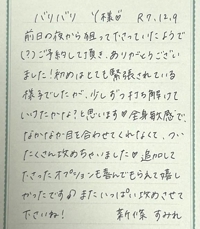 バリバリ 様♡ R7.12.9
前日の夜から狙って下さっていたようで
(?)ご予約して頂き、ありがとうござい
ました!初めはとても緊張されている
様子でしたが、少しずつ打ち解けて
いけたかな?と思います♡全身敏感で、
なかなか目を合わせてくれなくて、つい
たくさん攻めちゃいました♡追加して
下さったオプションも喜んでもらえて嬉し
かったです♪またいっぱい攻めさせて
下さいね! 新條 すみれ